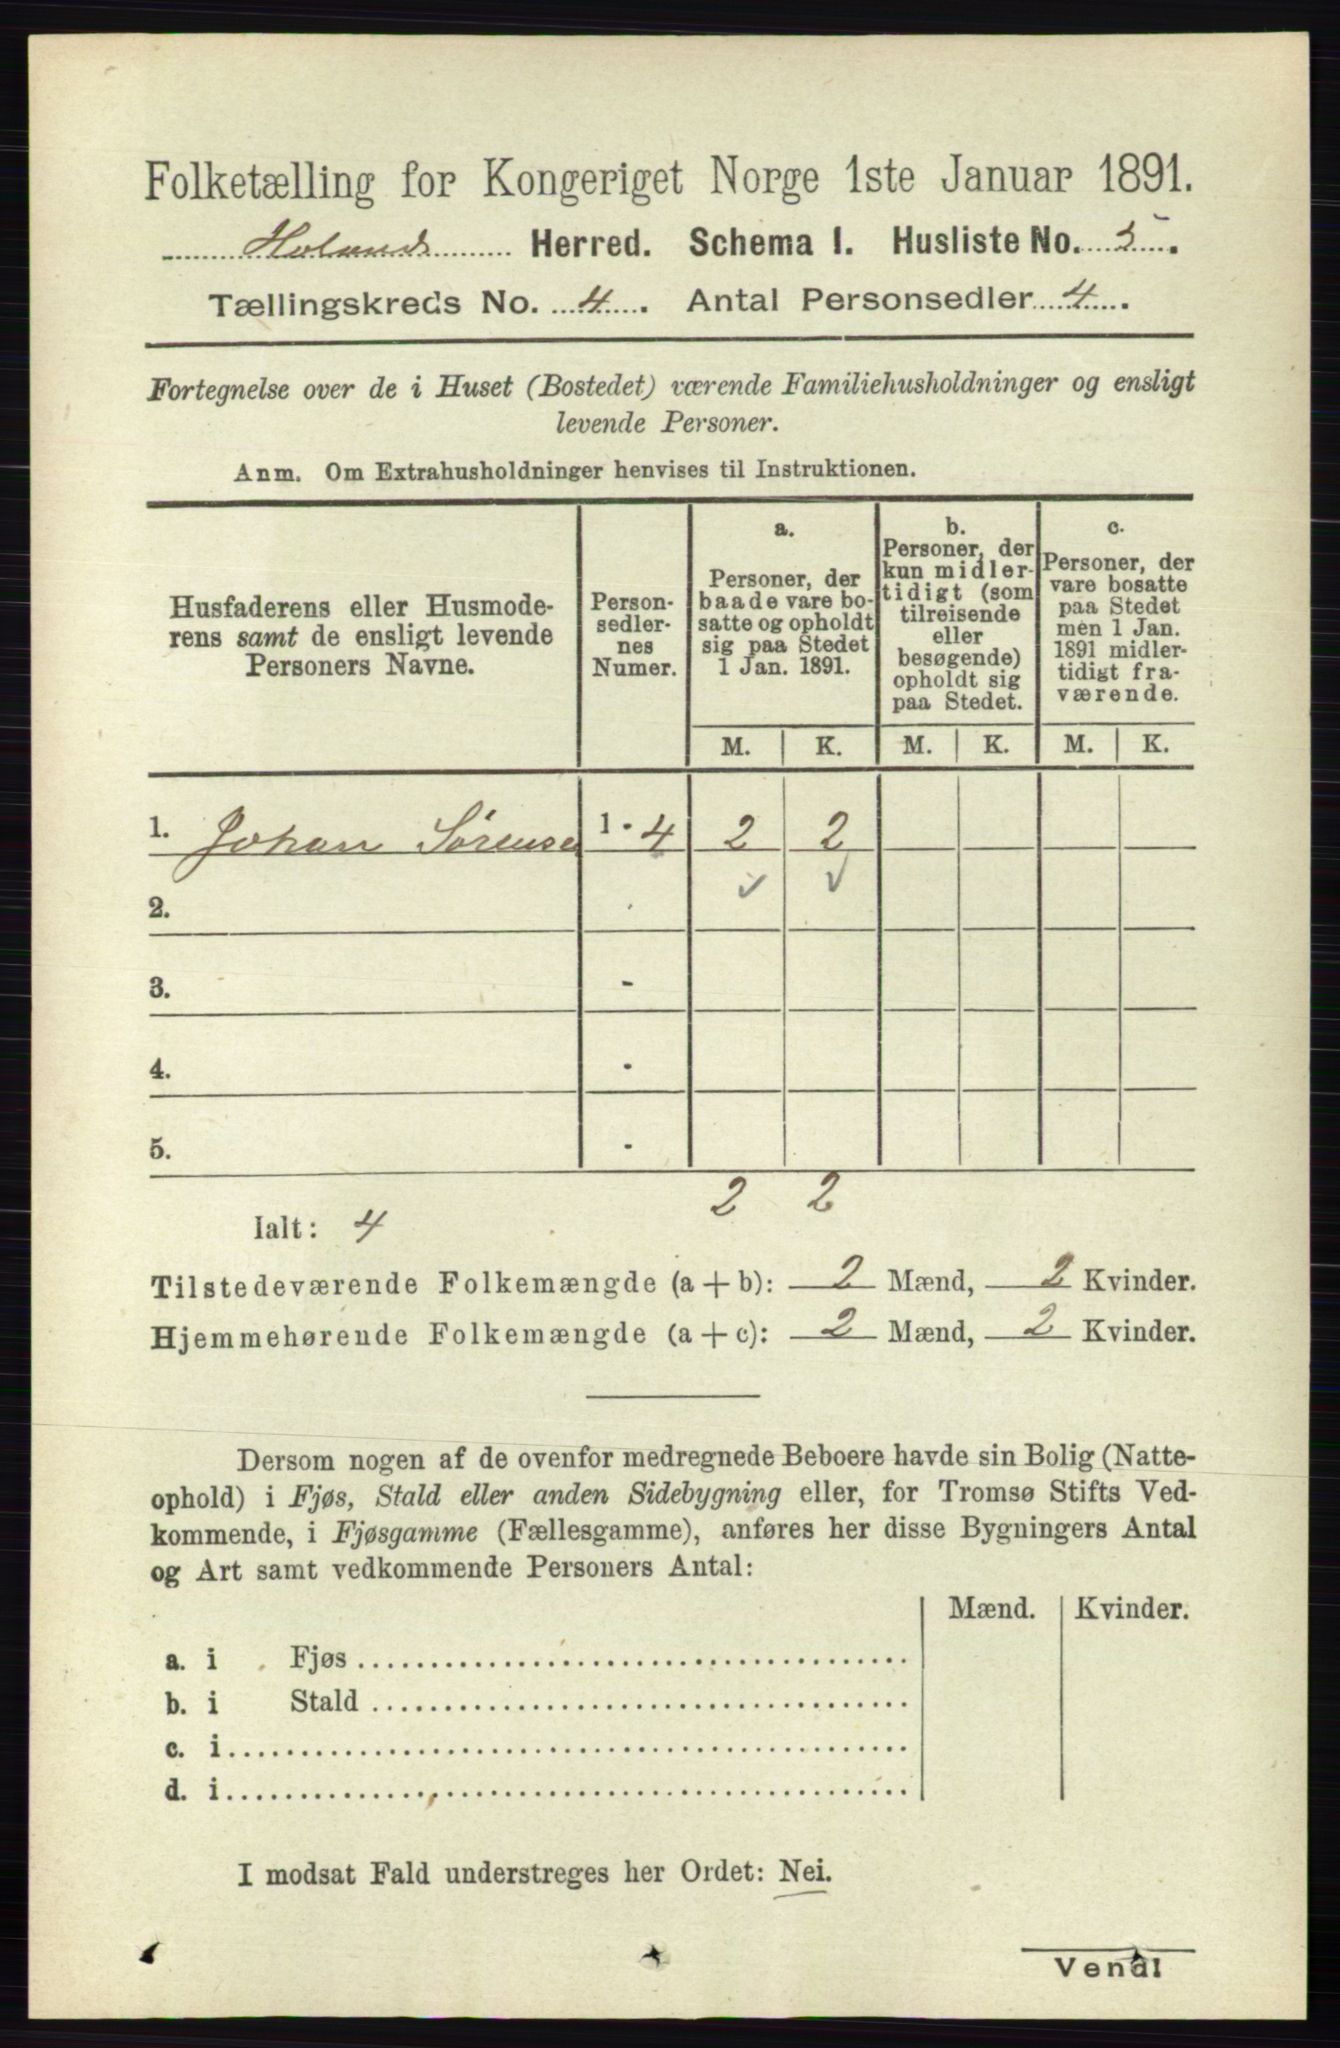 Folketælling for Kongeriget Norge 1ste Januar 1891.
Hølands Herred. Schema I. Husliste No. 5.
Tællingskreds No. 4. Antal Personsedler 4.
Fortegnelse over de i Huset (Bostedet) værende Familiehusholdninger og ensligt
levende Personer.
Anm. Om Extrahusholdninger henvises til Instruktionen.
Husfaderens eller Husmode-
rens samt de ensligt levende
Personers Navne.
Person-
sedler-
nes
Numer.
a.
Personer, der
baade vare bo-
satte og opholdt
sig paa Stedet
1 Jan. 1891.
b.
Personer, der
kun midler-
tidigt (som
tilreisende
eller
besøgende)
opholdt sig
paa Stedet.
c.
Personer, der
vare bosatte
paa Stedet
men 1 Jan.
1891 midler-
tidigt fra-
værende.
M. K. M. K. M. K.
1. Johan Sørensen 1 - 4 2 2
✓ ✓
2.
3. -
4. -
5. -
2 2
Ialt: 4
Tilstedeværende Folkemængde (a + b): 2 Mænd, 2 Kvinder.
Hjemmehørende Folkemængde (a + c): 2 Mænd, 2 Kvinder.
Dersom nogen af de ovenfor medregnede Beboere havde sin Bolig (Natte-
ophold) i Fjøs, Stald eller anden Sidebygning eller, for Tromsø Stifts Ved-
kommende, i Fjøsgamme (Fællesgamme), anføres her disse Bygningers Antal
og Art samt vedkommende Personers Antal:
Mænd. Kvinder.
a. i Fjøs
b. i Stald
c. i
d. i
I modsat Fald understreges her Ordet: Nei.
Vend!